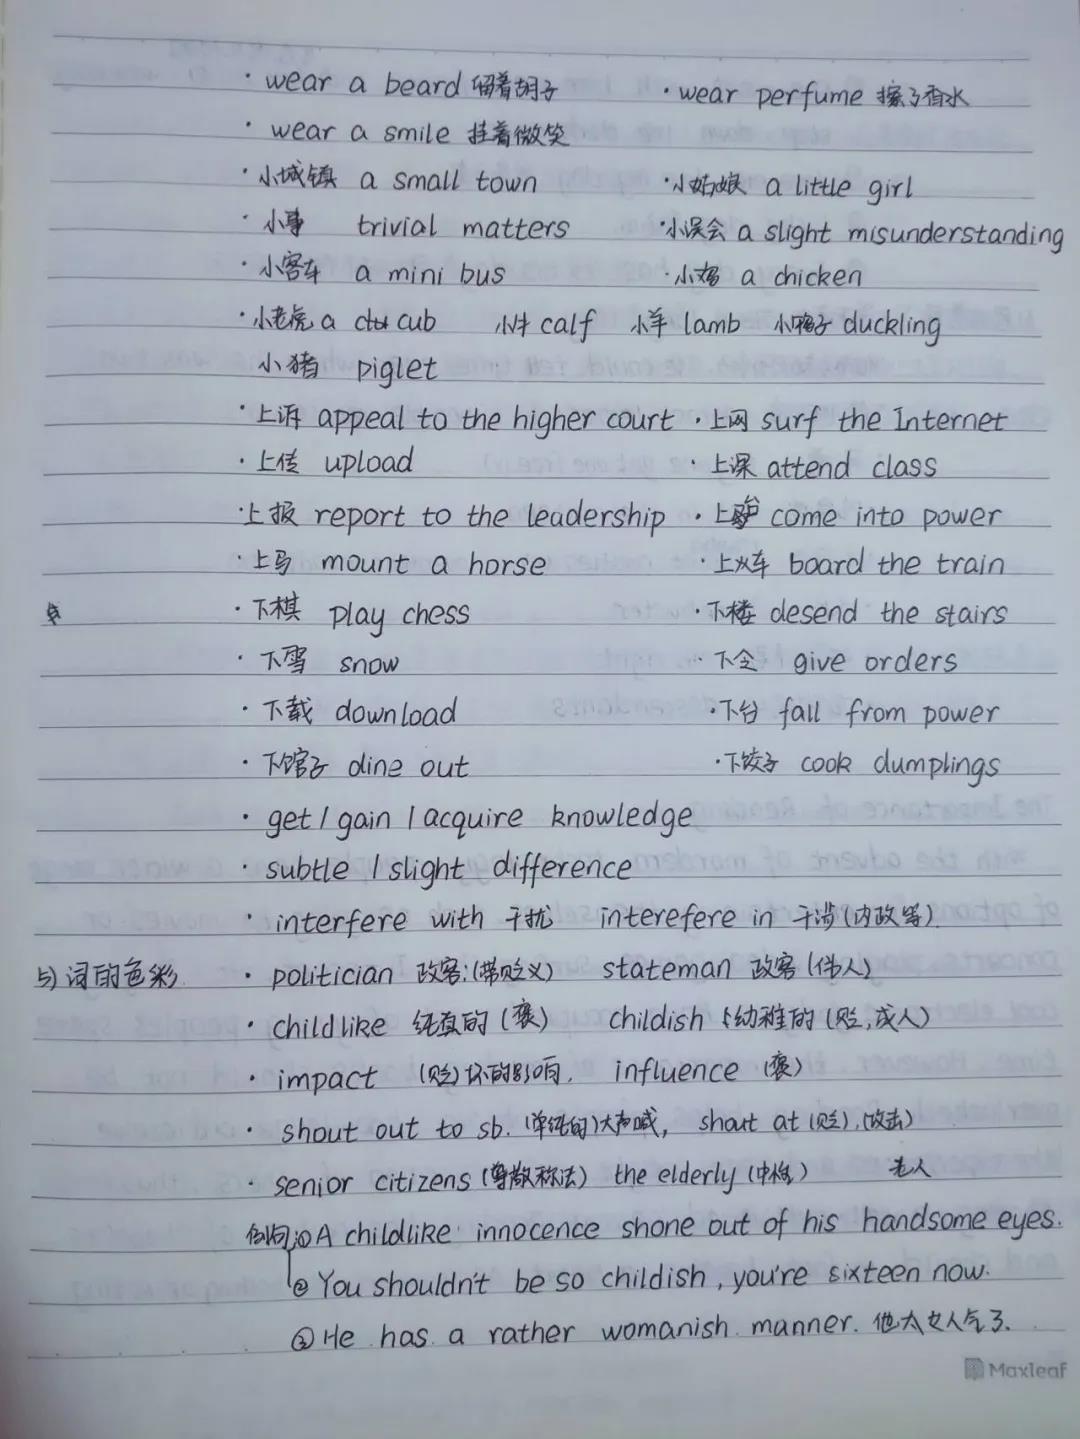 · wear a beard 留着胡子 · wear perfume 擦了香水
· wear a smile 挂着微笑
· 小城镇 a small town · 小姑娘 a little girl
· 小事 trivial matters · 小误会 a slight misunderstanding
· 小客车 a mini bus · 小鸡 a chicken
· 小老虎 a cub 小牛 calf 小羊 lamb 小鸭子 duckling
小猪 piglet
· 上诉 appeal to the higher court · 上网 surf the Internet
· 上传 upload · 上课 attend class
· 上报 report to the leadership · 上台 come into power
· 上马 mount a horse · 上火车 board the train
· 下棋 play chess · 下楼 desend the stairs
· 下雪 snow · 下令 give orders
· 下载 download · 下台 fall from power
· 下馆子 dine out · 下饺子 cook dumplings
· get / gain / acquire knowledge
· subtle / slight difference
· interfere with 干扰 interefere in 干涉(内政等)
5) 词的色彩 · politician 政客:(带贬义) stateman 政客(伟人)
· childlike 纯真的(褒) childish 幼稚的(贬,成人)
· impact (贬)坏的影响. influence (褒)
· shout out to sb. (单纯的)大声喊, shout at (贬).(攻击)
· senior citizens (尊敬称法) the elderly (中性) 老人
例句:① A childlike innocence shone out of his handsome eyes.
② You shouldn't be so childish, you're sixteen now.
③ He has a rather womanish manner. 他太女人气了.
Maxleaf